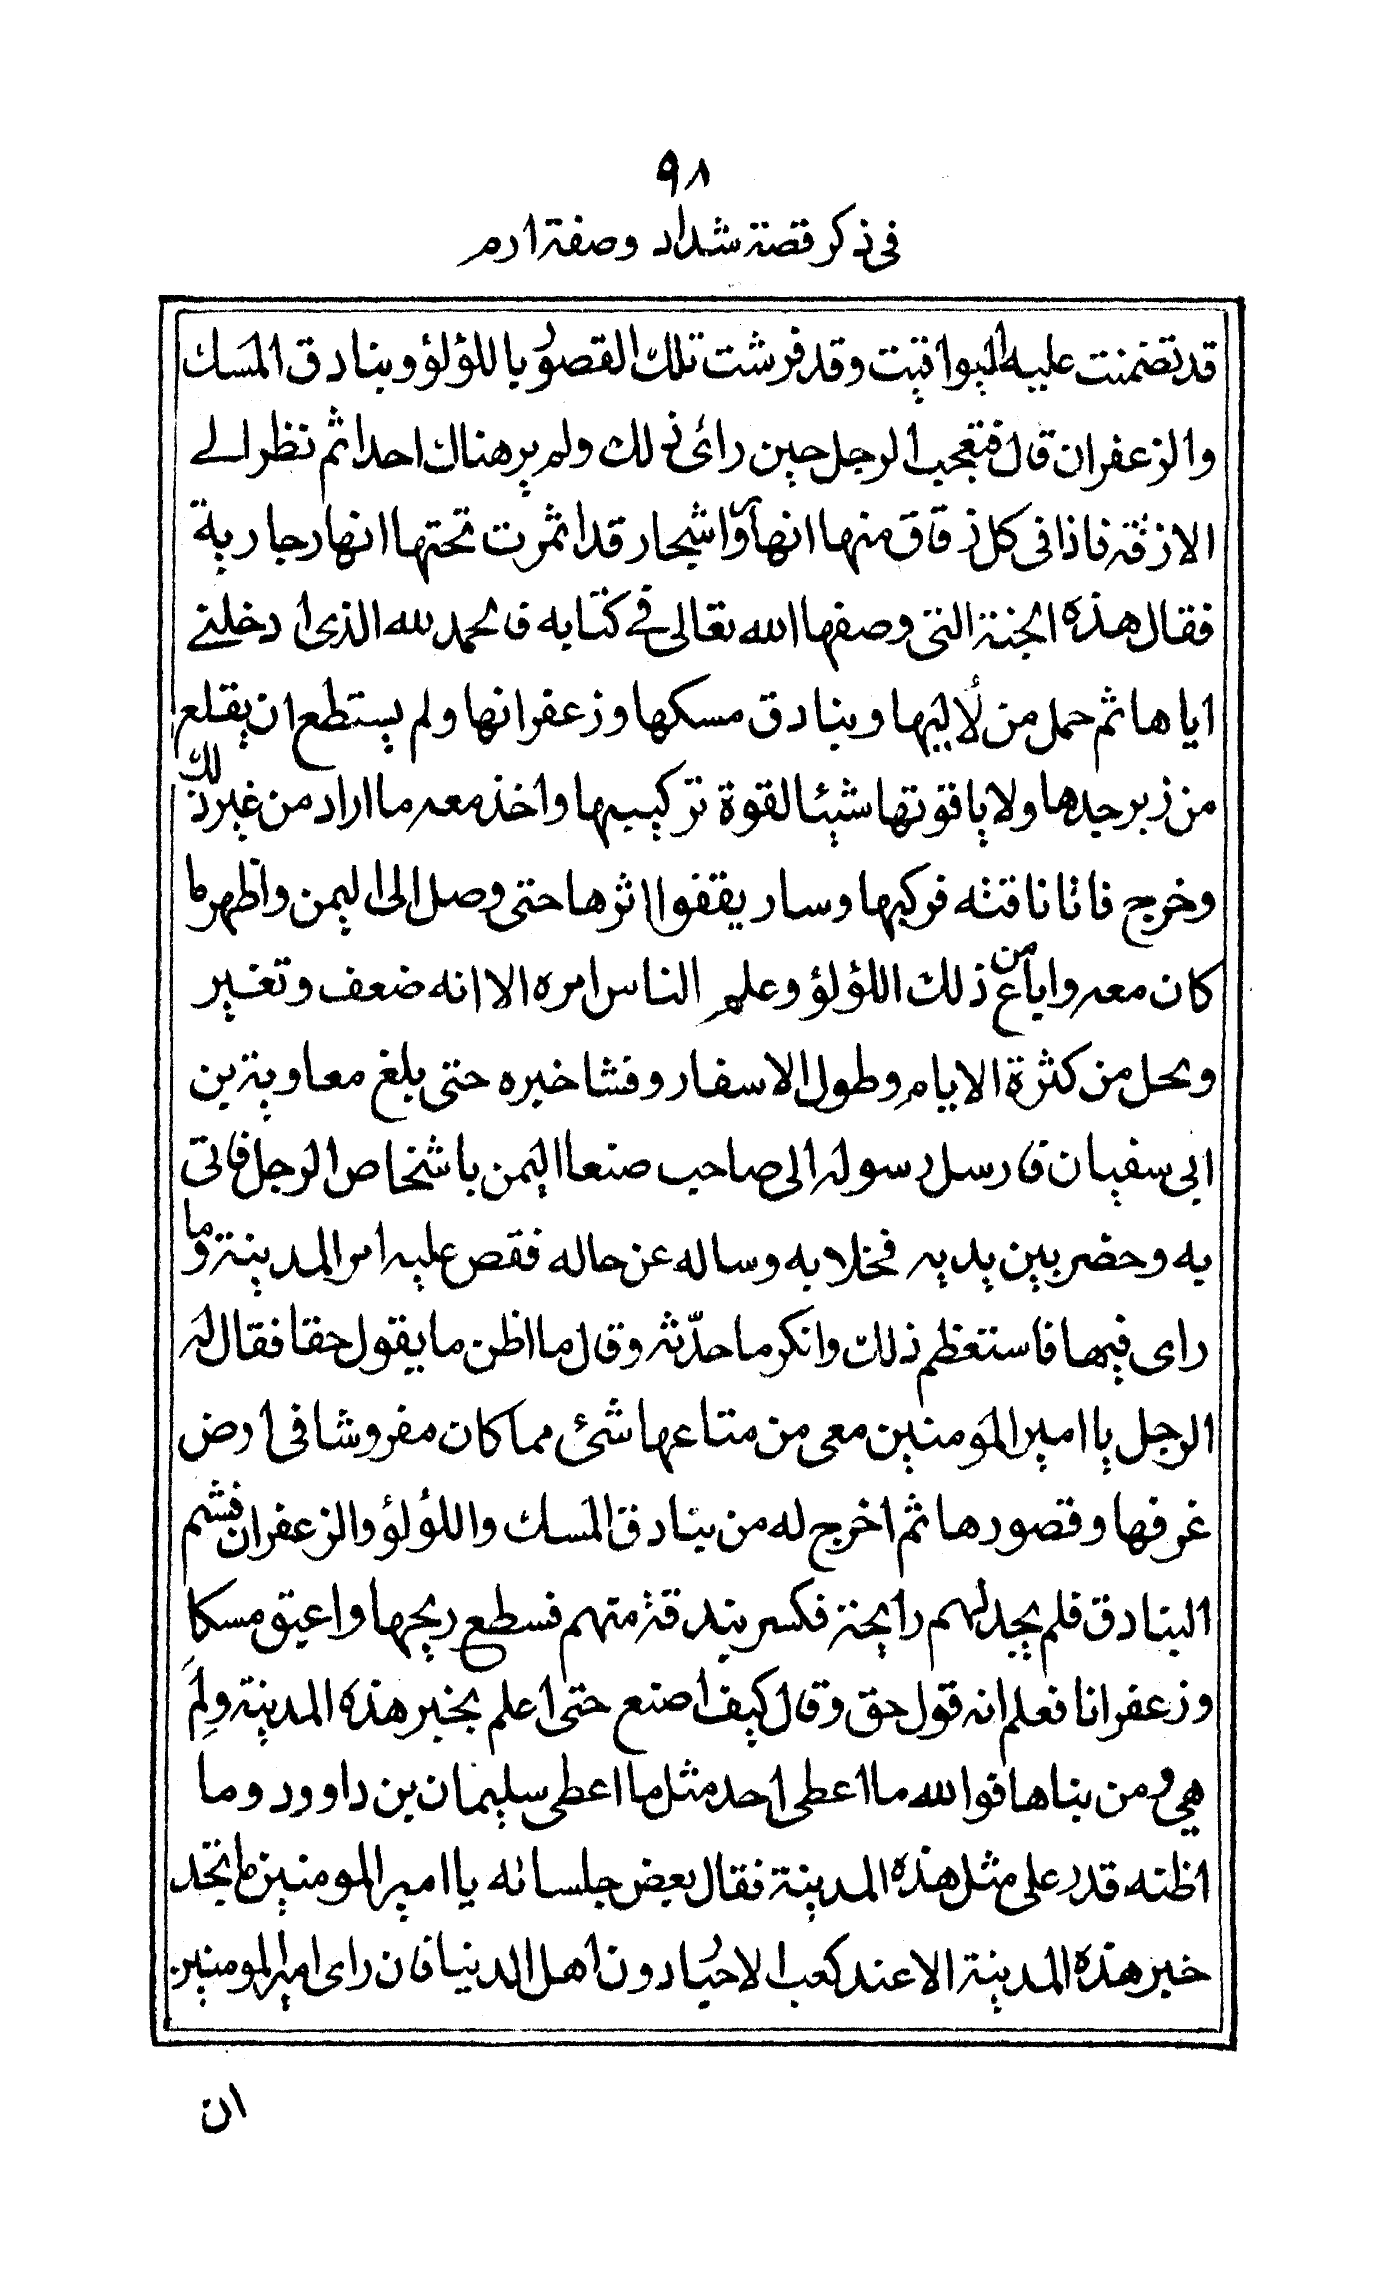 ٩٨
في ذكر قصة شداد وصفة ارم
قد تضمنت عليه اليواقيت وقد فرشت تلك القصور باللؤلؤ وبنادق المسك
والزعفران قال فتعجب الرجل حين رائ ذلك ولم ير هناك احدا ثم نظر الے
الازقة فاذا فى كل زقاق منها انهار واشجار قد اثمرت تحتها انهار جارية
فقال هذه الجنة التى وصفها الله تعالى فے كتابه فالحمد لله الذى ادخلنے
اياها ثم حمل من لُاليها وبنادق مسكها وزعفرانها ولم يستطع ان يقلع
من زبرجدها ولا ياقوتها شيئا لقوة تركيبها واخذ معه ما اراد من غير ذلك
وخرج فاتا ناقته فركبها وسار يقفوا اثرها حتى وصل الى اليمن واظهر ما
كان معه واباع من ذلك اللؤلؤ وعلم الناس امره الا انه ضعف وتغير
ونحل من كثرة الايام وطول الاسفار وفشا خبره حتى بلغ معاوية بن
ابى سفيان فارسل رسوله الى صاحب صنعا اليمن باشخاص الرجل فاتى
به وحضر بين يديه فخلا به وساله عن حاله فقص عليه امر المدينة وما
راى فيها فاستعظم ذلك وانكر ما حدّثه وقال ما اظن ما يقول حقا فقال له
الرجل يا امير المومنين معى من متاعها شئ مما كان مفروشا فى ارض
غرفها وقصورها ثم اخرج له من بنادق المسك واللؤلؤ والزعفران فشم
البنادق فلم يجد لهم رايحة فكسر بندقة منهم فسطع ريحها واعبق مسكا
وزعفرانا فعلم انه قول حق وقال كيف اصنع حتى اعلم بخبر هذه المدينة ولِمَ
هي ومن بناها فوالله ما اعطى احد مثل ما اعطى سليمان بن داوود وما
اظنه قدر على مثل هذه المدينة فقال بعض جلسائه يا امير المومنين ما تجد
خبر هذه المدينة الا عند كعب الاحبار دون اهل الدنيا فان راى امير المومنين
ان